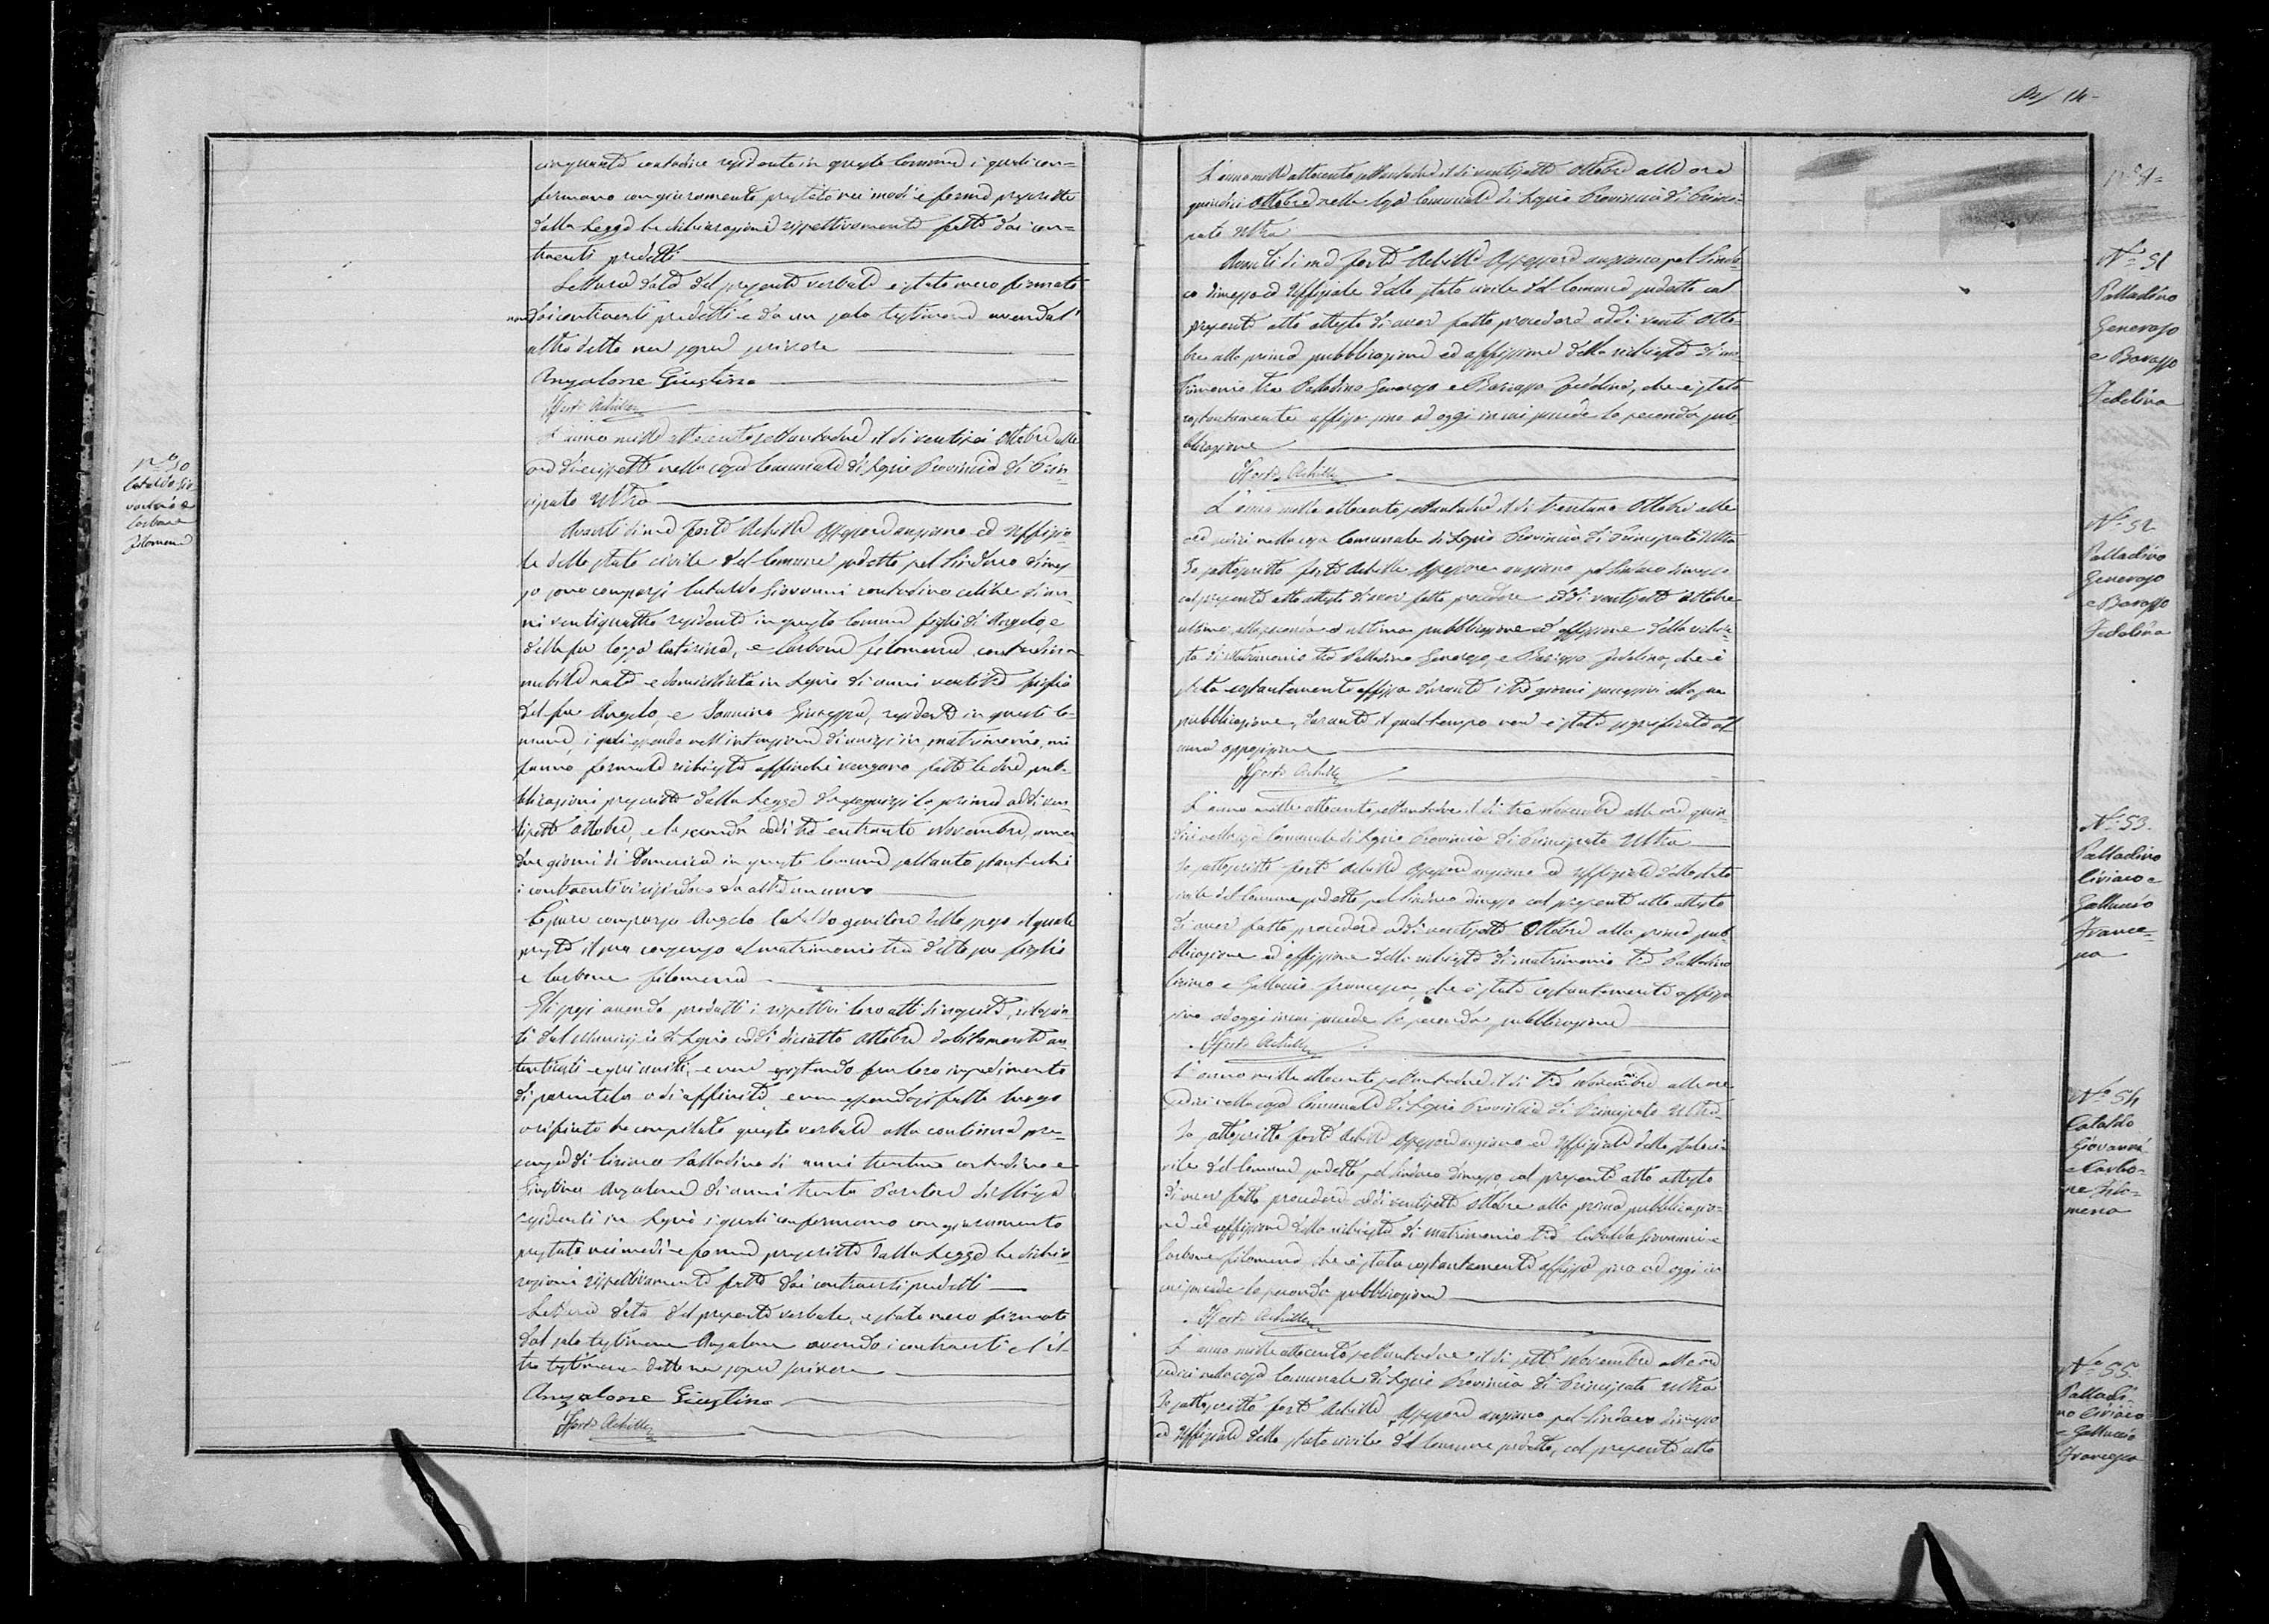 cinquanta contadine residente in questo Comune i quali con=
fermano con giuramento prestato nei modi e forme prescritte
dalla Legge le dichiarazioni rispettivamente fatte dai con=
traenti predetti
Lettura data del presente verbale è stato meco firmato
dai contraenti predetti e da un solo testimone avendo l'
altro detto non saper scrivere
Anzalone Giustino
Forte Achille
N.° 50
Cataldo Gio
vanni e
Carbone
Filomena
L'anno mille ottocento settantadue il dì ventisei Ottobre alle
ore diecissette nella casa Comunale di Provincia di Prin=
cipato Ultra
Avanti di me Forte Achille Assessore anziano ed Uffizia
le dello stato civile del Comune sudetto pel Sindaco dimes
so sono comparsi Cataldo Giovanni contadino celibe di an=
ni ventiquattro residente in questo Comune figlio di Angelo, e
della fu Caterina, e Carbone Filomena contadina
nubile nata e domiciliata in di anni ventitre figlia
del fu Angelo, e Giuseppa, residente in questo Co=
mune, i quali essendo nell'intenzione di unirsi in matrimonio, mi
fanno formale richiesta affinchè vengano fatte le due pub=
blicazioni prescritte dalla Legge da eseguirsi la prima addì ven=
tisette Ottobre, e la seconda addì tre entrante Novembre, amen
due giorni di Domenica in questo Comune soltanto
i contraenti
È pure comparso Angelo Cataldo genitore dello sposo il quale
presta il suo consenso al matrimonio tra detto suo figlio
e Carbone Filomena
Gli sposi avendo prodotti i rispettivi loro atti di nascita, rilascia=
ti dal Municipio di addì diciotto Ottobre debitamente au
tenticati e qui uniti, e non esistendo fra loro impedimento
di parentela o di affinità, e non essendosi fatto luogo
a rifiuto ho compilato questo verbale alla continua pre=
senza di Ciriaco Palladino di anni trentuno contadino e
Giustino Anzalone di anni trenta
residenti in i quali confermano con giuramento
prestato nei modi e forme prescritte dalla Legge le dichia
razioni rispettivamente fatte dai contraenti predetti
Lettura data del presente verbale, è stato meco firmato
dal solo testimone Anzalone avendo i contraenti e l'al=
tro testimone detto non saper scrivere
Anzalone Giustino
Forte Achille
14
N.° 51
Palladino
Generoso
e Barasso
Fedelina
L'anno mille ottocento settantadue il dì ventisette Ottobre alle ore
quindici Ottobre nella casa Comunale di Provincia di Princi=
pato Ultra
Avanti di me Forte Achille Assessore anziano pel Sinda=
co dimesso ed Uffiziale dello stato civile del Comune sudetto col
presente atto attesto di aver fatto procedere addì venti Otto=
bre alla prima pubblicazione ed affissione della richiesta di ma=
trimonio tra Palladino Generoso e Barasso Fedelina, che è stata
costantemente affissa sino ad oggi in cui succede la seconda pub=
blicazione
Forte Achille
N.° 52
Palladino
Generoso
e Barasso
Fedelina
L'anno mille ottocento settantadue il dì trentuno Ottobre alle
ore sedici nella casa Comunale di Provincia di Principato Ultra
Io sottoscritto Forte Achille Assessore anziano pel Sindaco dimesso
col presente atto attesto di aver fatto procedere addì ventisette Ottobre
ultimo, alla seconda ed ultima pubblicazione ed affissione della richie=
sta di Matrimonio tra Palladino Generoso, e Barasso Fedelina, che è
stata costantemente affissa durante i tre giorni successivi alla sua
pubblicazione, durante il qual tempo non è stata significata al=
cuna opposizione
Forte Achille
N.° 53.
Palladino
Ciriaco e
Galluccio
France=
sca
L'anno mille ottocento settantadue il dì tre Novembre alle ore quin=
dici nella casa Comunale di Provincia di Principato Ultra
Io sottoscritto Forte Achille Assessore anziano ed Uffiziale dello stato
civile del Comune sudetto pel Sindaco dimesso col presente atto attesto
di aver fatto procedere addì ventisette Ottobre alla prima pub=
blicazione ed affissione della richiesta di matrimonio tra Palladino
Ciriaco e Galluccio Francesca, che è stata costantemente affissa
sino ad oggi in cui succede la seconda pubblicazione
Forte Achille
N.° 54
Cataldo
Giovanni
e Carbo=
ne Filo=
mena
L'anno mille ottocento settantadue il dì tre Novembre alle ore
sedici nella casa Comunale di Provincia di Principato Ultra
Io sottoscritto Forte Achille Assessore anziano ed Uffiziale dello stato ci=
vile del Comune sudetto pel Sindaco dimesso, col presente atto attesto
di aver fatto procedere addì ventisette Ottobre alla prima pubblicazio=
ne ed affissione della richiesta di matrimonio tra Cataldo Giovanni e
Carbone Filomena, che è stata costantemente affissa sino ad oggi in
cui succede la seconda pubblicazione
Forte Achille
N.° 55.
Palladi
no Ciriaco
e Galluccio
Francesca
L'anno mille ottocento settantadue il dì sette Novembre alle ore
sedici nella casa Comunale di Provincia di Principato Ultra
Io sottoscritto Forte Achille Assessore anziano pel Sindaco dimesso
ed Uffiziale dello stato civile del Comune sudetto, col presente atto